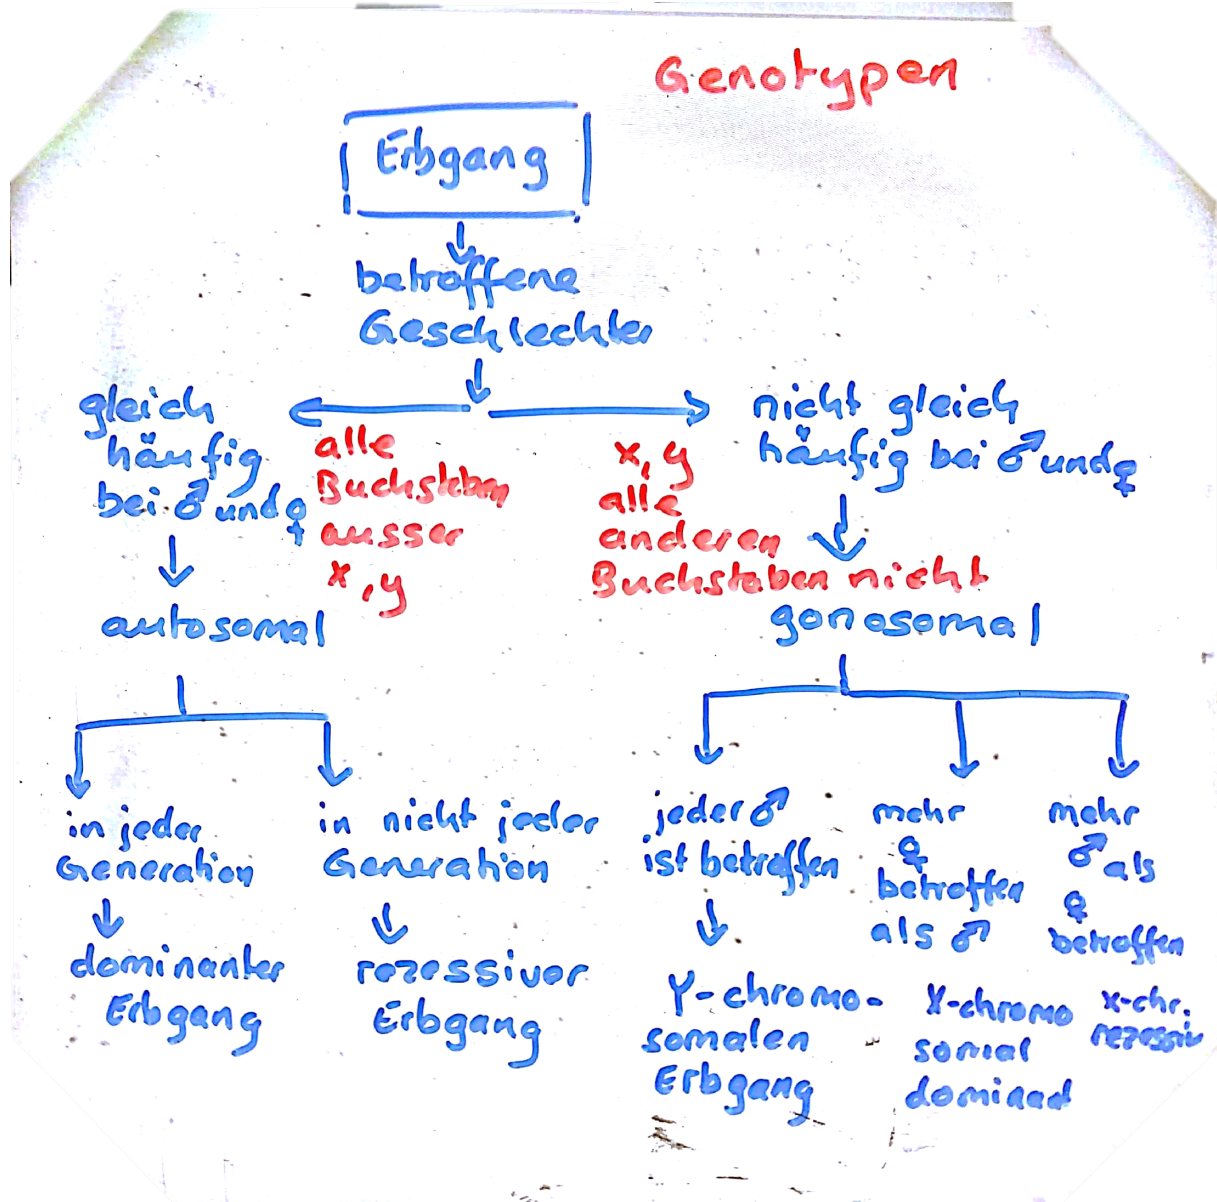 Genotypen
Erbgang
betroffene
Geschlechter
gleich
häufig
bei ♂ und ♀
alle
Buchstaben
ausser
x, y
x, y
alle
anderen
Buchstaben nicht
nicht gleich
häufig bei ♂ und ♀
autosomal
gonosomal
in jeder
Generation
dominanter
Erbgang
in nicht jeder
Generation
rezessiver
Erbgang
jeder ♂
ist betroffen
Y-chromo-
somalen
Erbgang
mehr
♀
betroffen
als ♂
X-chromo
somal
dominant
mehr
♂ als
♀
betroffen
x-chr.
rezessiv